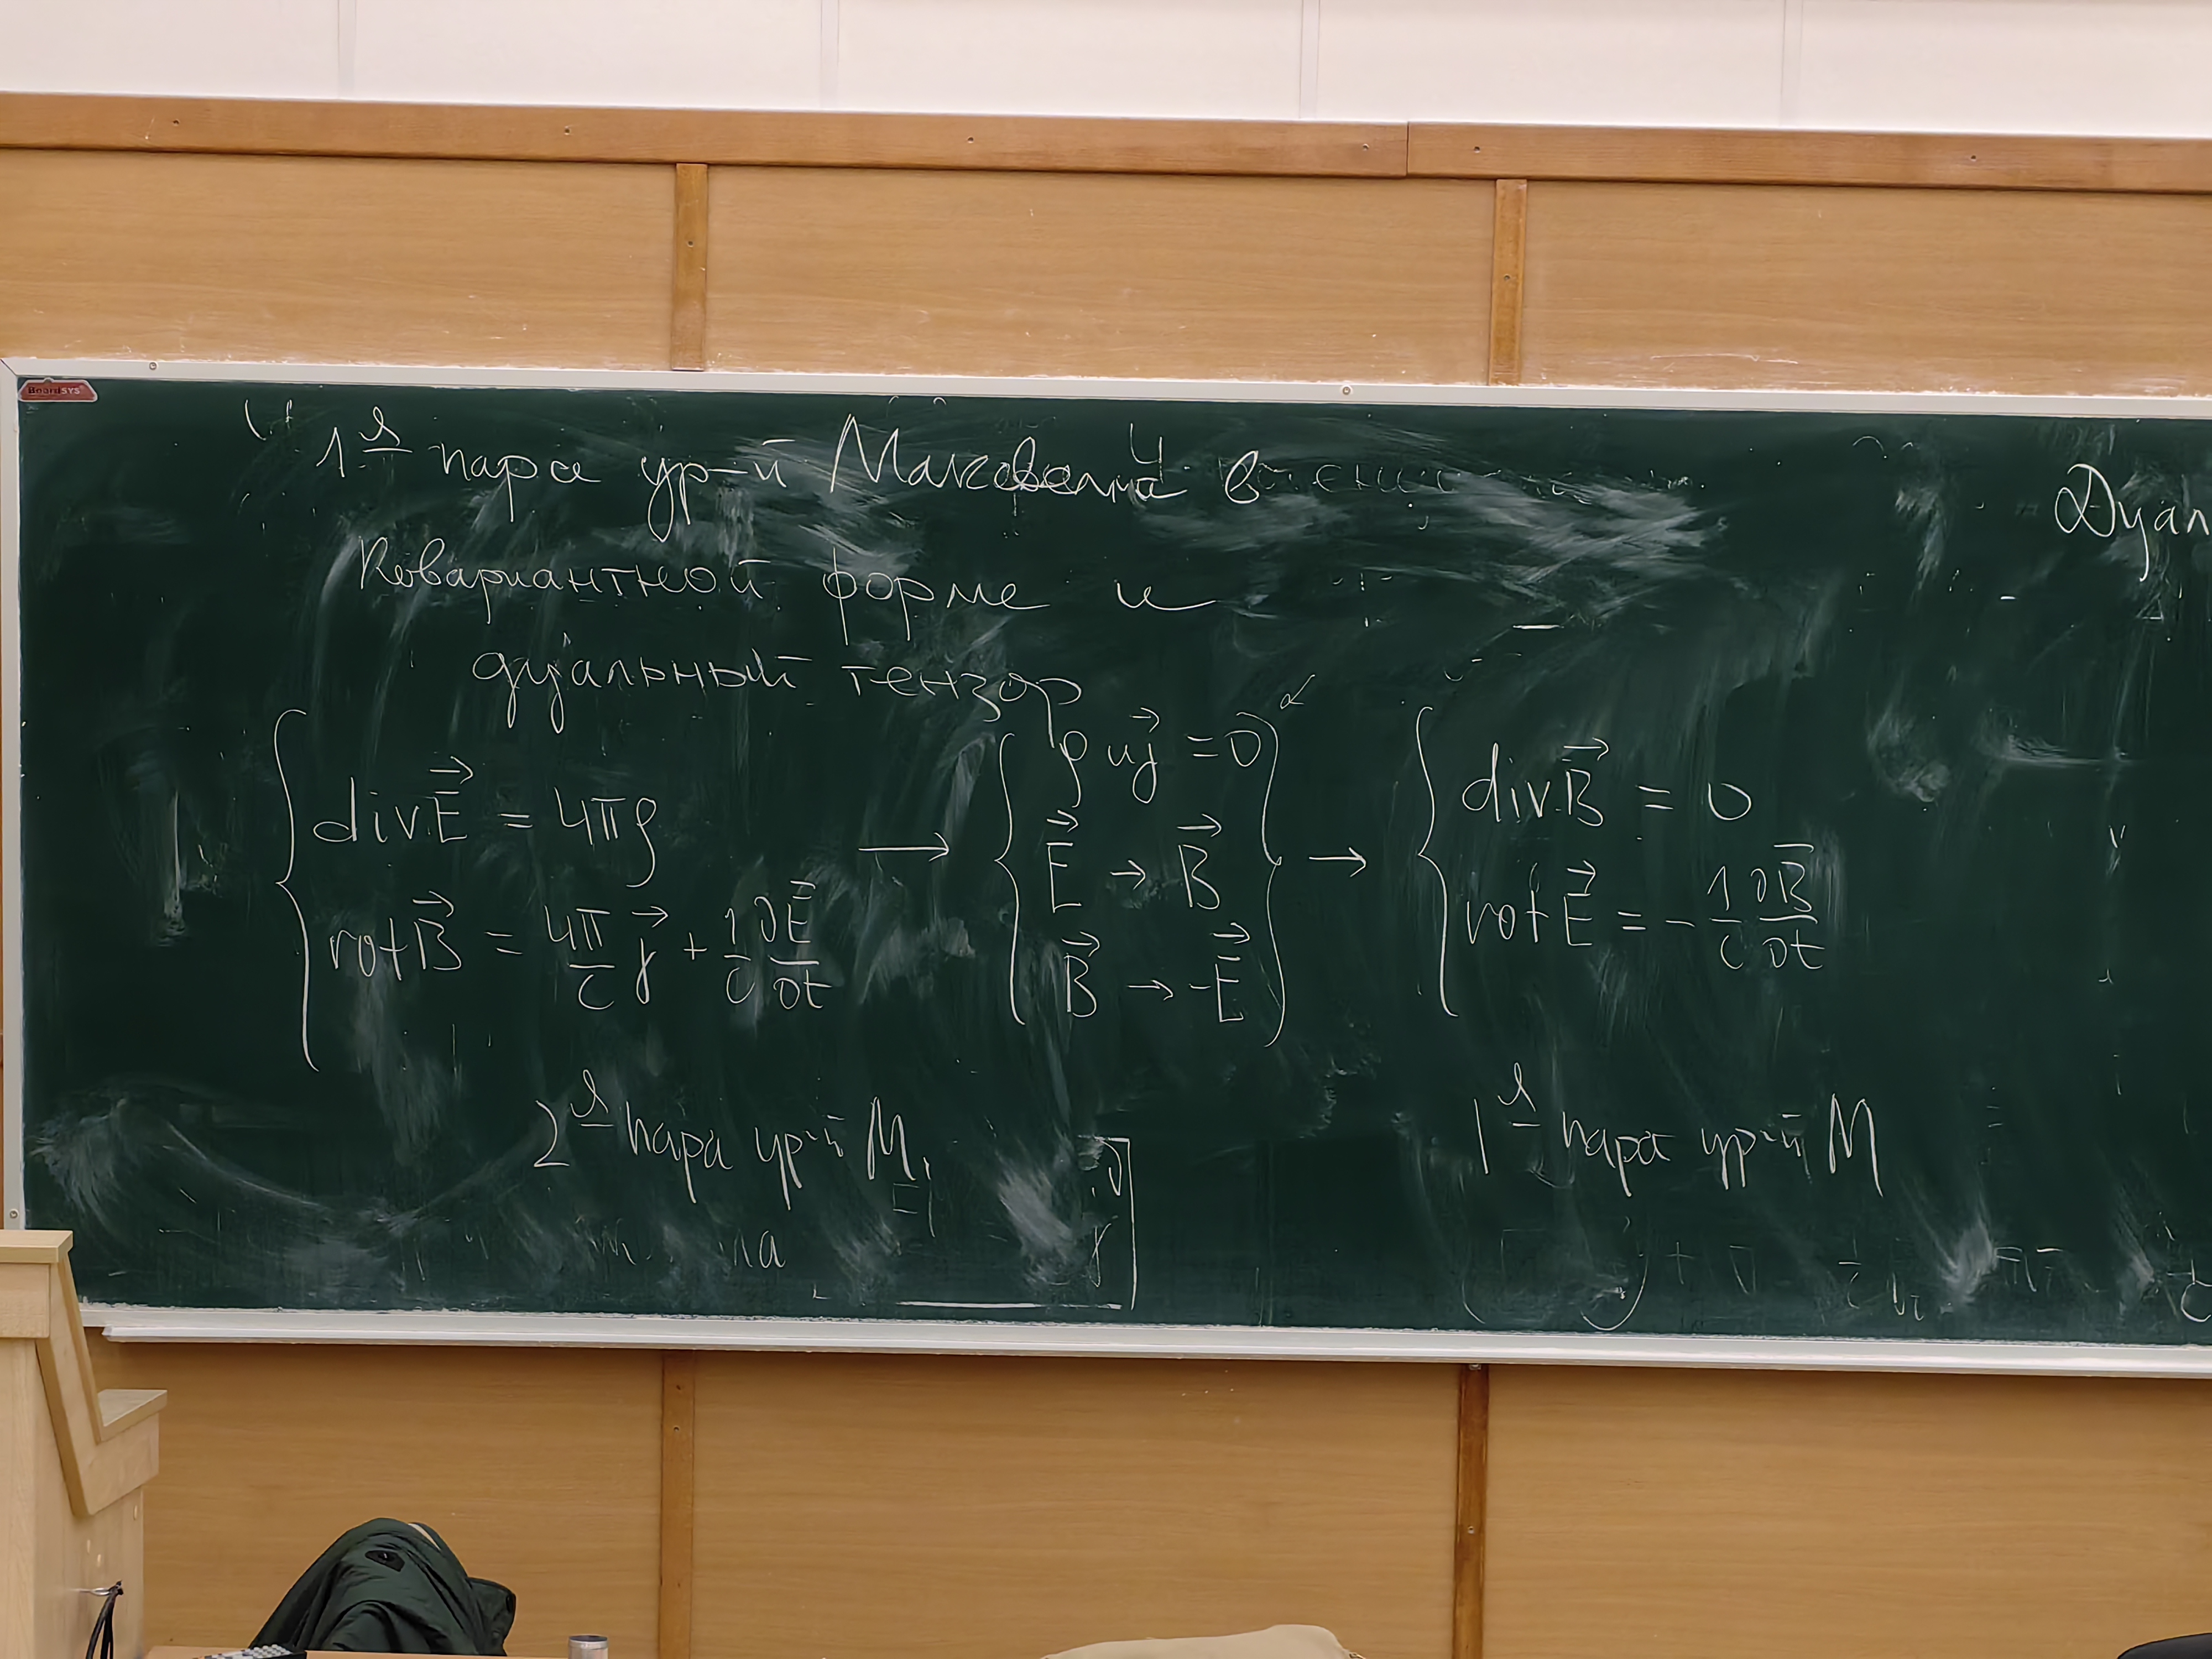 BoardSYS
1я пара ур-й Максвелла в
ковариантной форме и
дуальный тензор
div E⃗ = 4πρ
rot B⃗ = 4π/c j⃗ + 1/c ∂E⃗/∂t
→
ρ и j⃗ = 0
E⃗ → B⃗
B⃗ → -E⃗
→
div B⃗ = 0
rot E⃗ = - 1/c ∂B⃗/∂t
2я пара ур-й М
1я пара ур-й М
Дуал